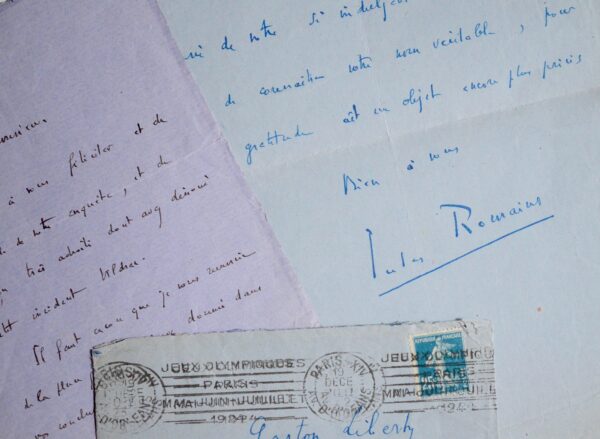 monsieur.
à vous féliciter et de
de votre enquête, et de
très adroite dont avez dénoué
petit incident
Il faut aussi que je vous remercie
de la donné dans
de votre si indulgent
de connaître votre nom véritable, pour
gratitude ait un objet encore plus précis
Bien à vous
Jules Romains
JEUX OLYMPIQUES
PARIS
MAI-JUIN-JUILLET
1924
PARIS-XIV
19
DECE
AV. D'ORLEANS
JEUX OLYMPIQUES
PARIS
MAI-JUIN-JUILLET
192
Gaston Liberty